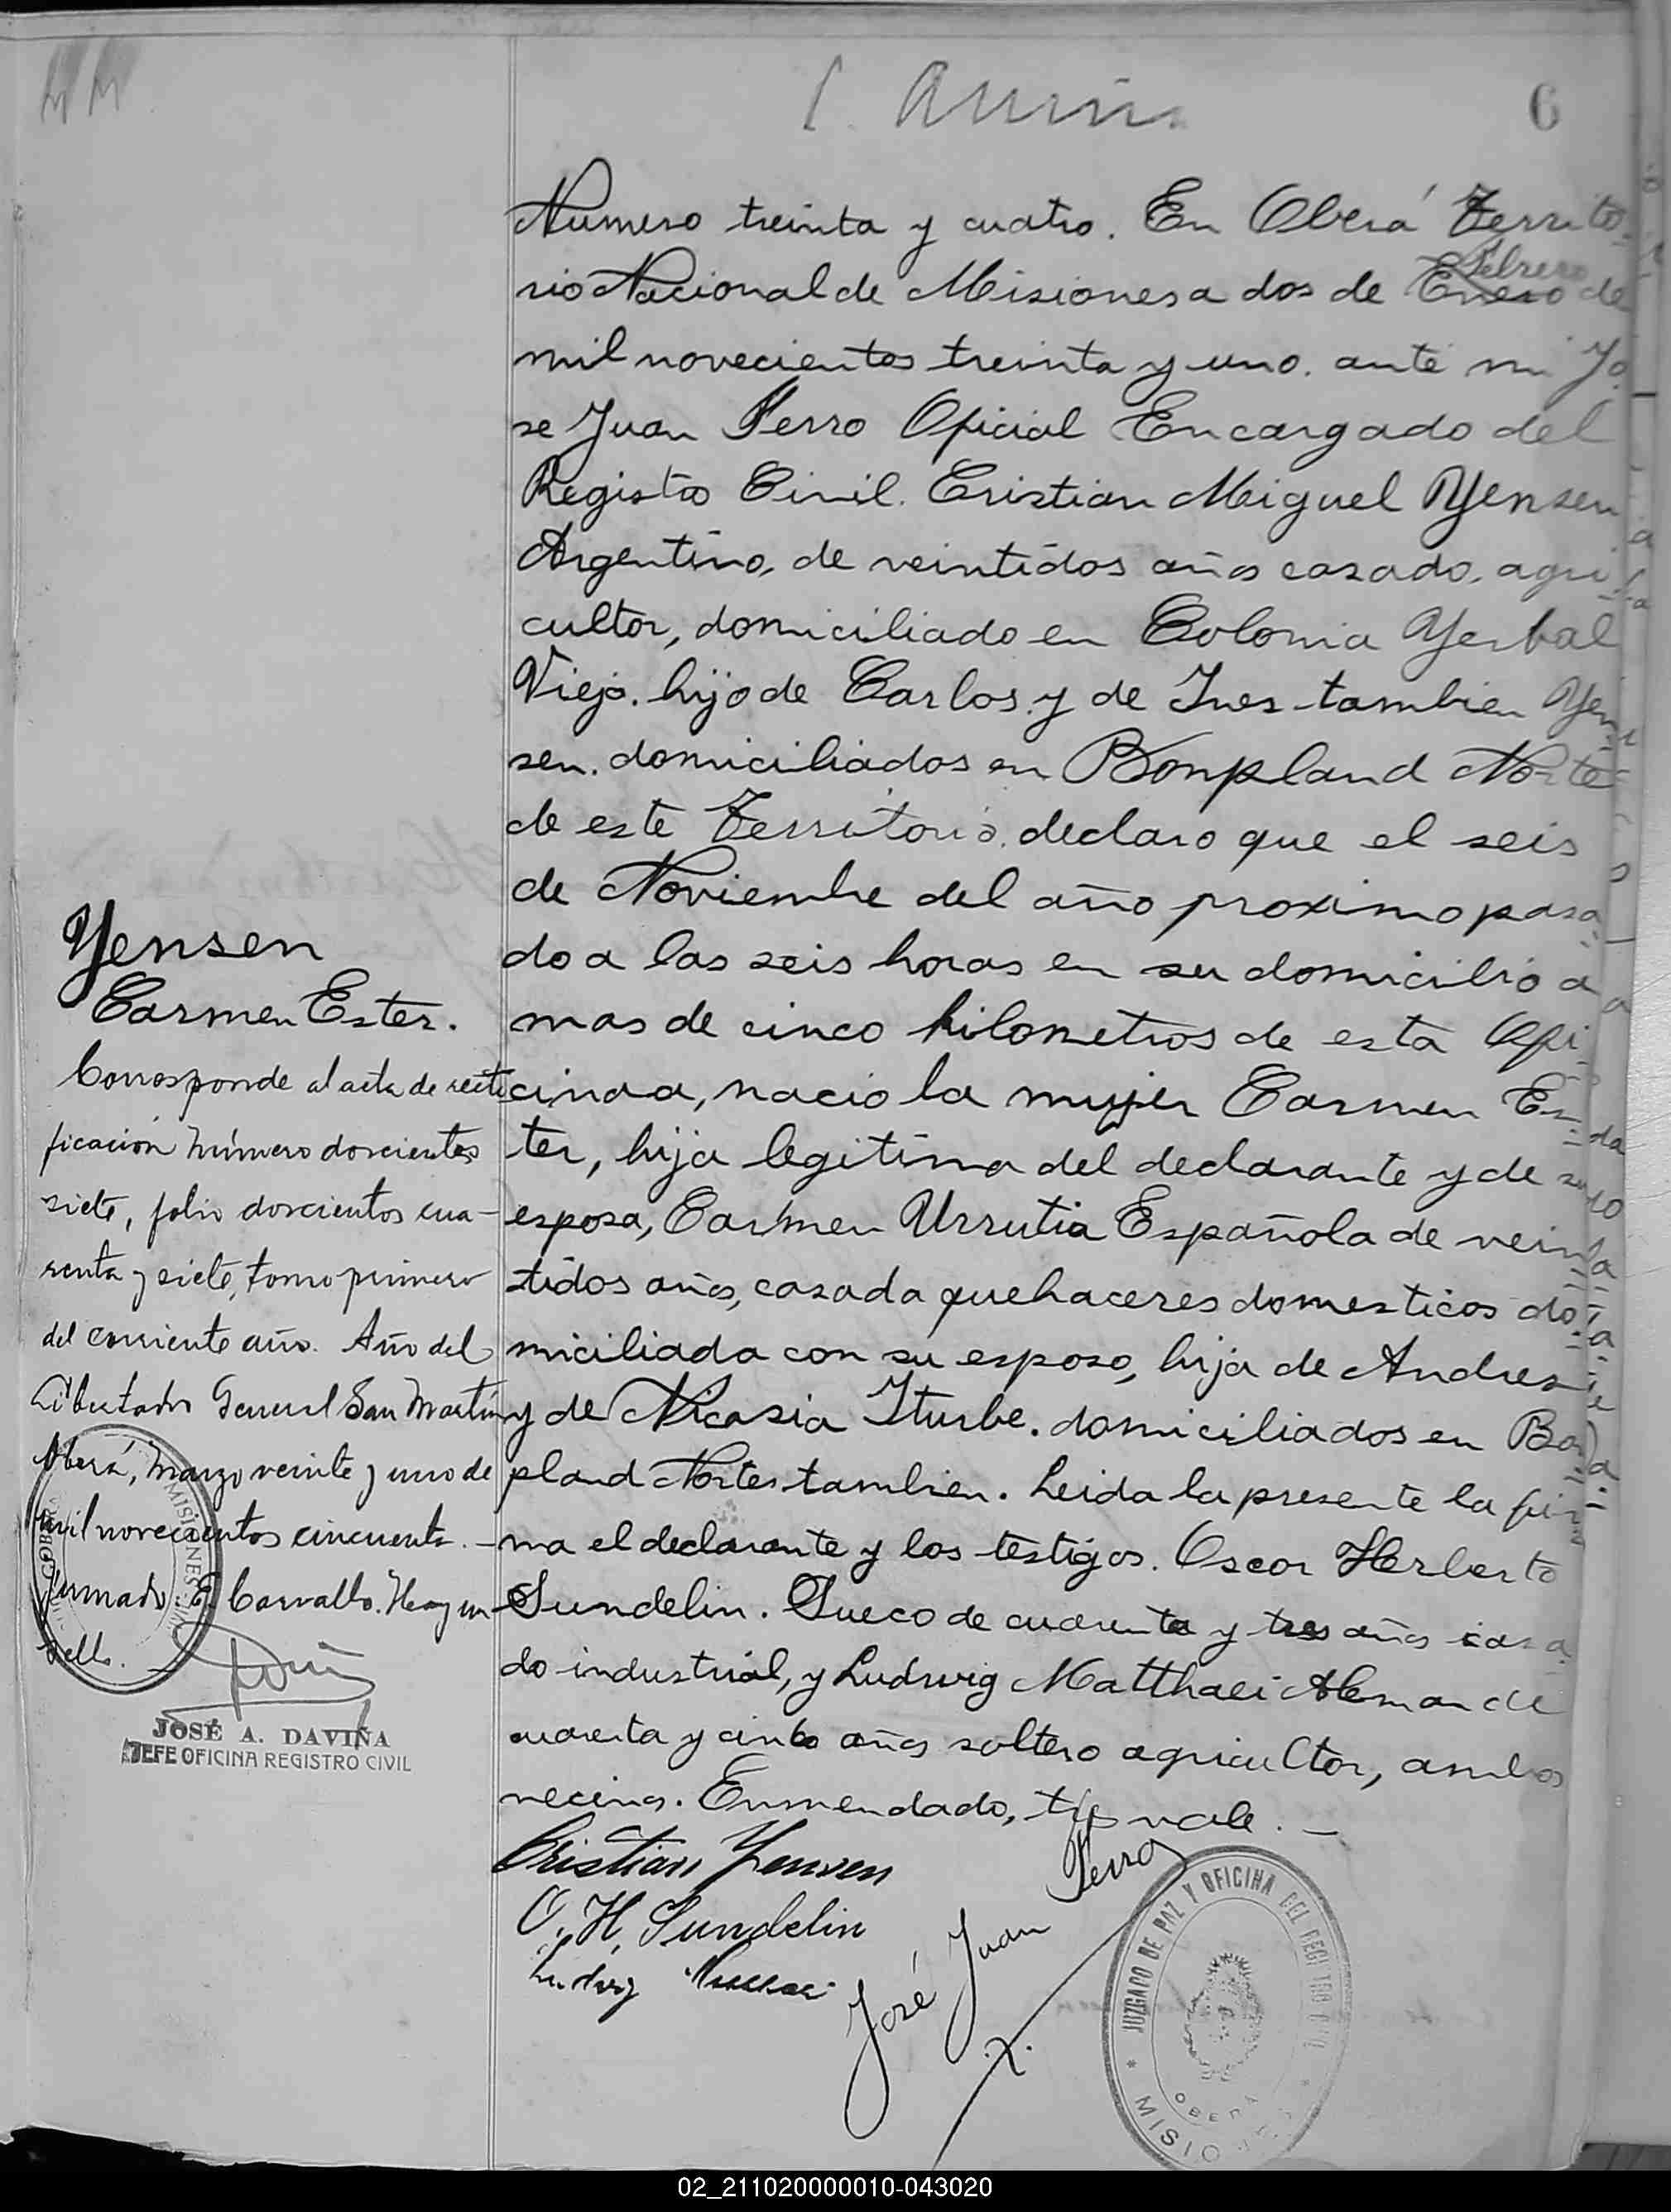 6
Numero treinta y cuatro. En Oberá Territo-
rio Nacional de Misiones a dos de Enero Febrero de
mil novecientos treinta y uno. ante mi Jo-
se Juan Ferro Oficial Encargado del
Registro Civil. Cristian Miguel Yensen
Argentino, de veintidos años casado, agri-
cultor, domiciliado en Colonia Yerbal
Viejo. hijo de Carlos y de Ines tambien Yen-
sen. domiciliados en Bonpland Norte
de este Territorio, declaro que el seis
de Noviembre del año proximo pasa-
do a las seis horas en su domicilio a
mas de cinco kilometros de esta Ofi-
cinaa, nacio la mujer Carmen Es-
ter, hija legitima del declarante y de su
esposa, Carmen Urrutia Española de vein-
tidos años, casada quehaceres domesticos do-
miciliada con su esposo, hija de Andres
y de Nicasia Iturbe. domiciliados en Bon-
pland Nortes tambien. Leida la presente la fir-
ma el declarante y los testigos. Oscar Herberto
Sundelin. Sueco de cuarenta y tres años casa-
do industrial, y Ludwig Matthaei Aleman de
cuarenta y cinco años soltero agricultor, ambos
vecinos. Enmendado, tres vale. —
Yensen
Carmen Ester.
Corresponde al acta de recti-
ficación número doscientos
siete, folio doscientos cua-
renta y siete, tomo primero
del corriente año. Año del
Libertador General San Martín
Oberá, Marzo veinte y uno de
mil novecientos cincuenta. -
Firmado E. Carvallo. Hay un
sello.
JOSÉ A. DAVIÑA
JEFE OFICINA REGISTRO CIVIL
Cristian Yensen
O. H. Sundelin
Ludwig
José Juan Ferro
JUZGADO DE PAZ Y OFICINA DEL REGISTRO CIVIL
OBERÁ
MISIONES
02_211020000010-043020